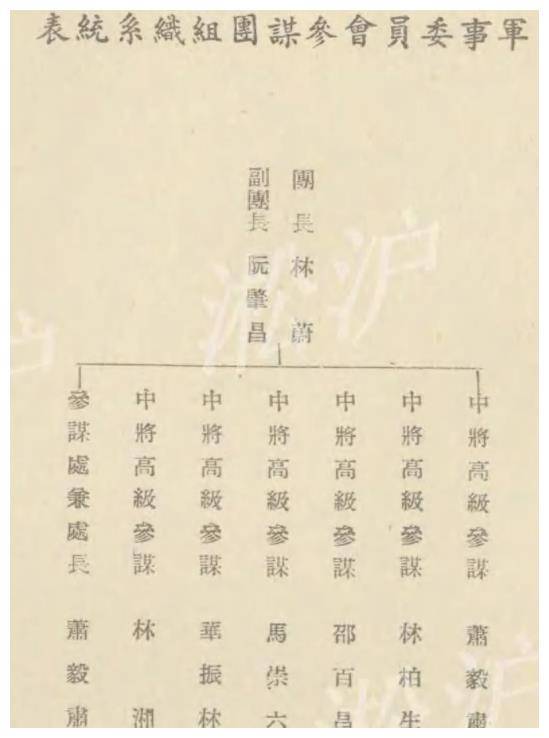 軍事委員會參謀團組織系統表
團長 林蔚
副團長 阮肇昌
中將高級參謀 蕭毅肅
中將高級參謀 林柏生
中將高級參謀 邵百昌
中將高級參謀 馬崇六
中將高級參謀 華振林
中將高級參謀 林湘
參謀處兼處長 蕭毅肅
淞沪